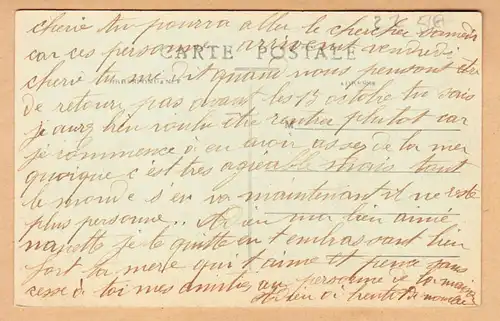 cherie tu pourra aller le cherche samedi
car ces personnes arriveront vendredi
CARTE POSTALE
cherie tu me dit quand nous pensont être
de retour pas avant les 13 octobre tu sais
je aurg bien voulu être rentrée plutot car
je commence a en avoir asses de la mer
quoique c'est tres agreable mais tout
le monde s'en va maintenant il ne reste
plus personne.. Adieu ma bien aimée
nanette je te quitte en t'embrassant bien
fort ta mere qui t'aime et pense sans
cesse à toi mes amities au personne de la maison
Adieu a